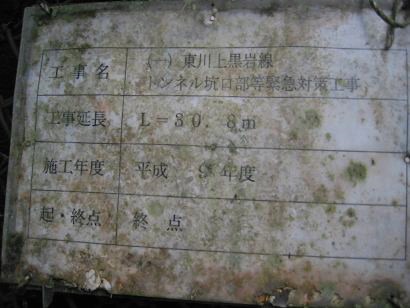 工事名 (一) 東川上黒岩線
トンネル坑口部等緊急対策工事
工事延長 L=30.8m
施工年度 平成 9年度
起・終点 終点